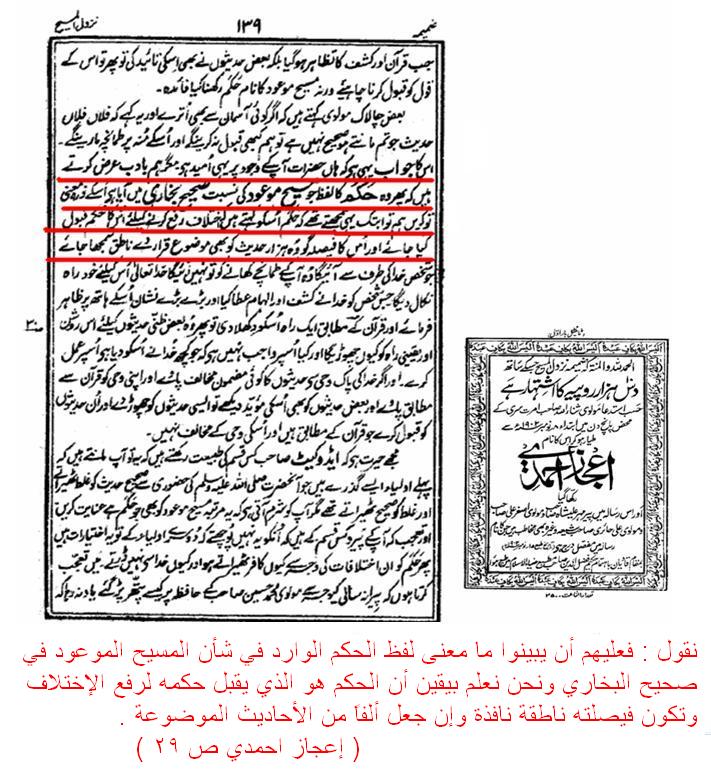 ضمیمہ
۱۳۹
نزول المسیح
جب قرآن اور کشف کا تظاہر ہوگیا بلکہ بعض حدیثوں نے بھی اسکی تائید کی تو پھر تو اس کے
قول کو قبول کرنا چاہئے ورنہ مسیح موعود کا نام حَکَم رکھنا کیا فائدہ۔
بعض چالاک مولوی کہتے ہیں کہ اگر کوئی آسمان سے بھی اُترے اور یہ کہے کہ فلاں فلاں
حدیث جو تم مانتے ہو صحیح نہیں ہے تو ہم کبھی قبول نہ کرینگے اور اُسکے مُنہ پر طمانچہ مارینگے۔
اس کا جواب یہی ہو کہ ہاں حضرات آپ کے وجود پر یہی اُمید ہو مگر ہم بادب عرض کرتے
ہیں کہ پھر وہ حَکَم کا لفظ جو مسیح موعود کی نسبت صحیح بخاری میں آیا ہو اُسکے ذرہ معنی
تو کریں ہم تو ابتک یہی سمجھتے تھے کہ حَکَم اُسکو کہتے ہیں کہ اختلاف رفع کرنے کیلئے اس کا حکم قبول
کیا جائے اور اُس کا فیصلہ گو وہ ہزار حدیث کو بھی موضوع قرار دے ناطق سمجھا جائے
جو شخص خدا کی طرف سے آئیگا وہ آپ کے طمانچے کھانے کو تو نہیں آئیگا خدا تعالیٰ اُس کیلئے خود راہ
نکال دیگا جس شخص کو خدا نے کشف اور الہام عطا کیا اور بڑے بڑے نشان اُسکے ہاتھ پر ظاہر
فرمائے اور قرآن کے مطابق ایک راہ اُسکو دکھلا دی تو پھر وہ بعض ظنّی حدیثوں کیلئے اس روشن
اور یقینی راہ کو کیوں چھوڑیگا اور کیا اُسپر واجب نہیں ہو کہ جو کچھ خدا نے اُسکو دیا ہو اُسپر عمل
کرے۔ اور اگر خدا کی پاک وحی سے حدیثوں کا کوئی مضمون مخالف پائے اور اپنی وحی کو قرآن سے
مطابق پائے اور بعض حدیثوں کو بھی اُسکی مؤید دیکھے تو ایسی حدیثوں کو چھوڑ دے اور اُن حدیثوں
کو قبول کرے جو قرآن کے مطابق ہیں اور اُسکی وحی کے مخالف نہیں۔
مجھے حیرت ہو کہ ایڈوکیٹ صاحب کس قسم کی طبیعت رکھتے ہیں کہ یہ تو آپ مانتے ہیں کہ
پہلے اولیاء ایسے گذرے ہیں جو آنحضرت صلی اللہ علیہ وسلم کی حضوری سے صحیح حدیث کو غلط ٹھیراتے
اور غلط کو صحیح ٹھیراتے تھے مگر آپ کو شرم آتی ہو کہ یہ مرتبہ مسیح موعود کو بھی جو حَکَم ہے عنایت کریں
کو یہ اختیارات ہیں
پھر حَکَم کو ان اختلافات کی وجہ سے کیوں کافر ٹھیراتے ہو اور کیوں خدا سے نہیں ڈرتے۔ میں تعجب
کرتا ہوں کہ پیرانہ سالی کیوجہ سے مولوی محمد حسین صاحب کے حافظہ پر کیسے پتھر پڑ گئے یاد نہ رہا کہ
الحمد للہ والمنۃ کہ ضمیمہ نزول المسیح جسکے ساتھ
دس ہزار روپیہ کا اشتہار ہے
اعجاز احمدی
رکھا گیا
نقول : فعليهم أن يبينوا ما معنى لفظ الحكم الوارد في شأن المسيح الموعود في
صحيح البخاري ونحن نعلم بيقين أن الحكم هو الذي يقبل حكمه لرفع الإختلاف
وتكون فيصلته ناطقة نافذة وإن جعل ألفاً من الأحاديث الموضوعة .
( إعجاز احمدي ص ٢٩ )